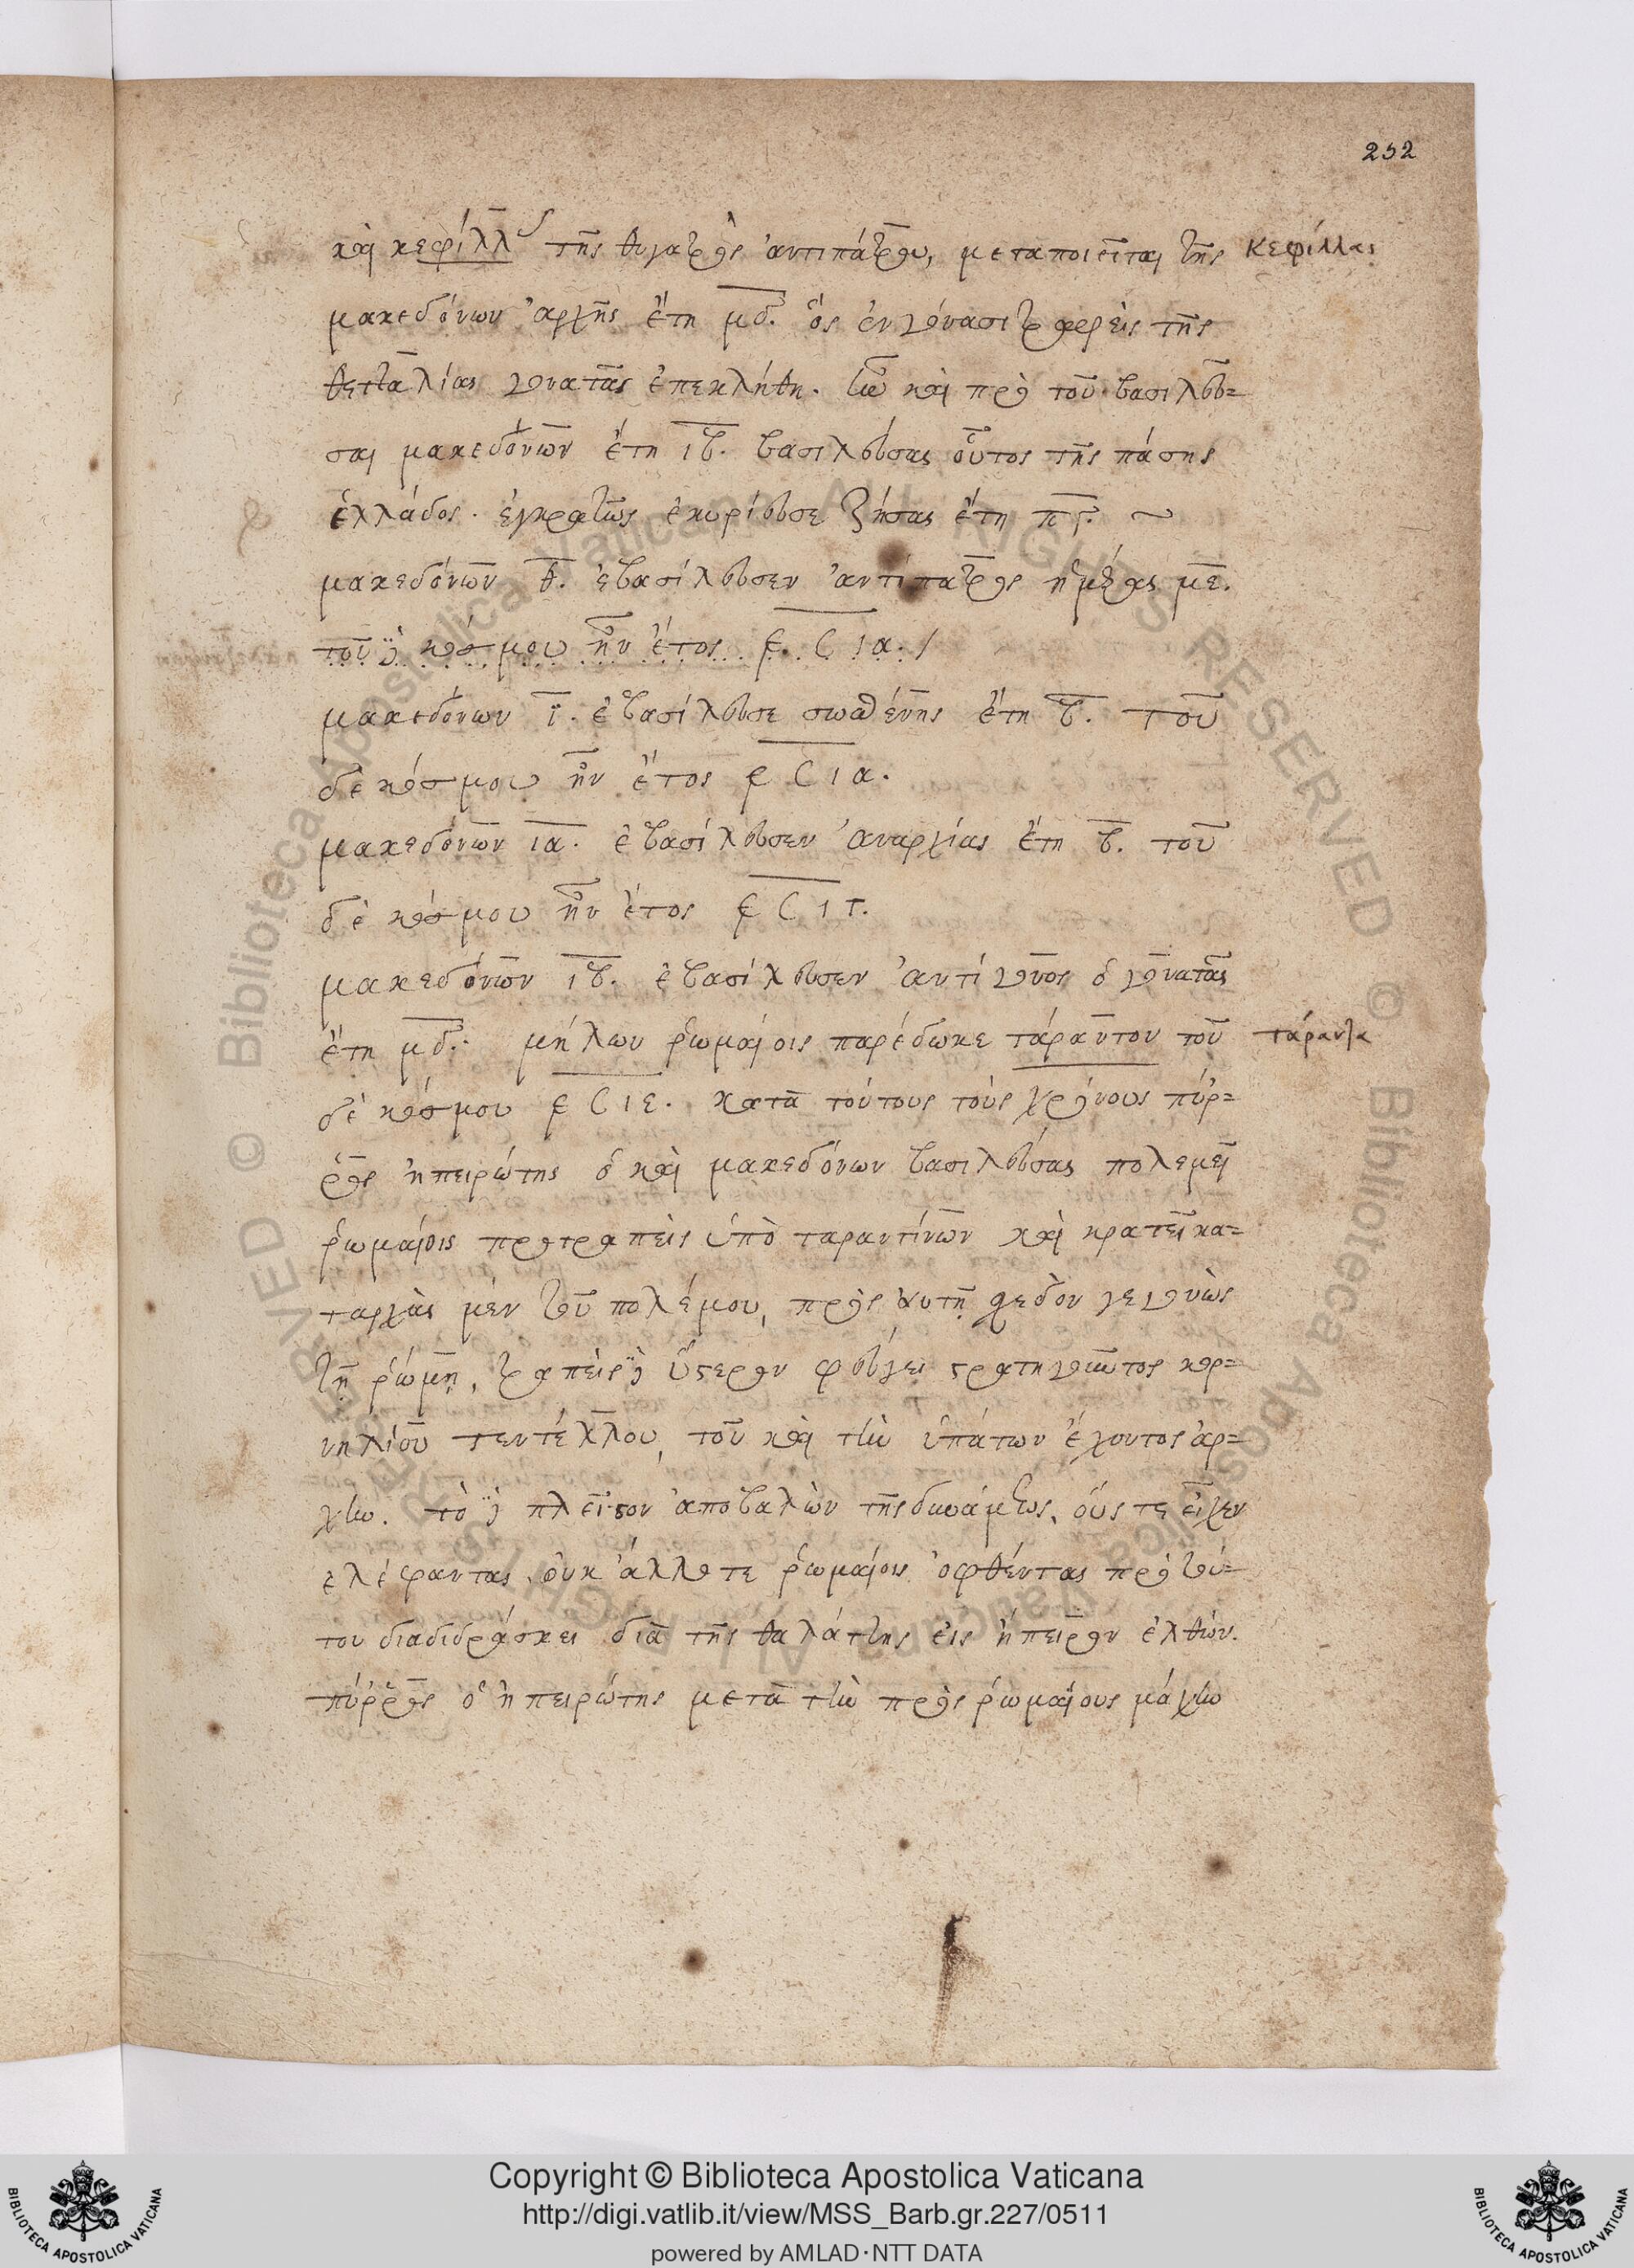 252
καὶ κεφίλλ τῆς θυγατρὸς ἀντιπάτρου, μεταποιεῖται τῆς κεφίλλας
μακεδόνων ἀρχῆς ἔτη μδ. ὃς ἐν γόνασι τραφεὶς τῆς
θετταλίας γονατᾶς ἐπεκλήθη. ἦν καὶ πρὸ τοῦ βασιλεῦ-
σαι μακεδόνων ἔτη ιβ. βασιλεύσας οὗτος τῆς πάσης
ἑλλάδος. ἐγκρατῶς ἐκυρίευσε ζήσας ἔτη πγ. ~
μακεδόνων θ. ἐβασίλευσεν ἀντίπατρος ἡμέρας με.
τοῦ δὲ κόσμου ἦν ἔτος ͵ε C ια. /
μακεδόνων ϊ. ἐβασίλευσε σωσθένης ἔτη β. τοῦ
δὲ κόσμου ἦν ἔτος ͵ε C ια.
μακεδόνων ια. ἐβασίλευσεν ἀναρχίας ἔτη β. τοῦ
δὲ κόσμου ἦν ἔτος ͵ε C ιγ.
μακεδόνων ιβ. ἐβασίλευσεν ἀντίγονος ὁ γονατᾶς
ἔτη μδ. μήλων ῥωμαίοις παρέδωκε τάραντον τοῦ τάραντα
δὲ κόσμου ͵ε C ιε. κατὰ τούτους τοὺς χρόνους πύρ-
ρος ἠπειρώτης ὁ καὶ μακεδόνων βασιλεύσας πολεμεῖ
ῥωμαίοις προτραπεὶς ὑπὸ ταραντίνων καὶ κρατεῖ κα-
ταρχὰς μὲν τοῦ πολέμου, πρὸς αὐτῇ σχεδὸν γεγονὼς
τῇ ῥώμῃ, τραπεὶς δὲ ὕστερον φεύγει στρατηγοῦντος κορ-
νηλίου τεντέλλου, τοῦ καὶ τὴν ὑπάτων ἔχοντος ἀρ-
χήν. τὸ δὲ πλεῖστον ἀποβαλὼν τῆς δυνάμεως, οὕς τε εἶχεν
ελέφαντας, οὐκ ἄλλοτε ῥωμαίοις ὀφθέντας πρὸ τού-
του διαδιδράσκει διὰ τῆς θαλάττης εἰς ἤπειρον ἐλθών.
πύρρος ὁ ἠπειρώτης μετὰ τὴν πρὸς ῥωμαίους μάχην
Copyright © Biblioteca Apostolica Vaticana
http://digi.vatlib.it/view/MSS_Barb.gr.227/0511
powered by AMLAD·NTT DATA